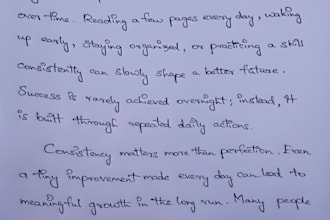 over time. Reading a few pages every day, waking
up early, staying organized, or practicing a skill
consistently can slowly shape a better future.
Success is rarely achieved overnight; instead, it
is built through repeated daily actions.
Consistency matters more than perfection. Even
a tiny improvement made every day can lead to
meaningful growth in the long run. Many people